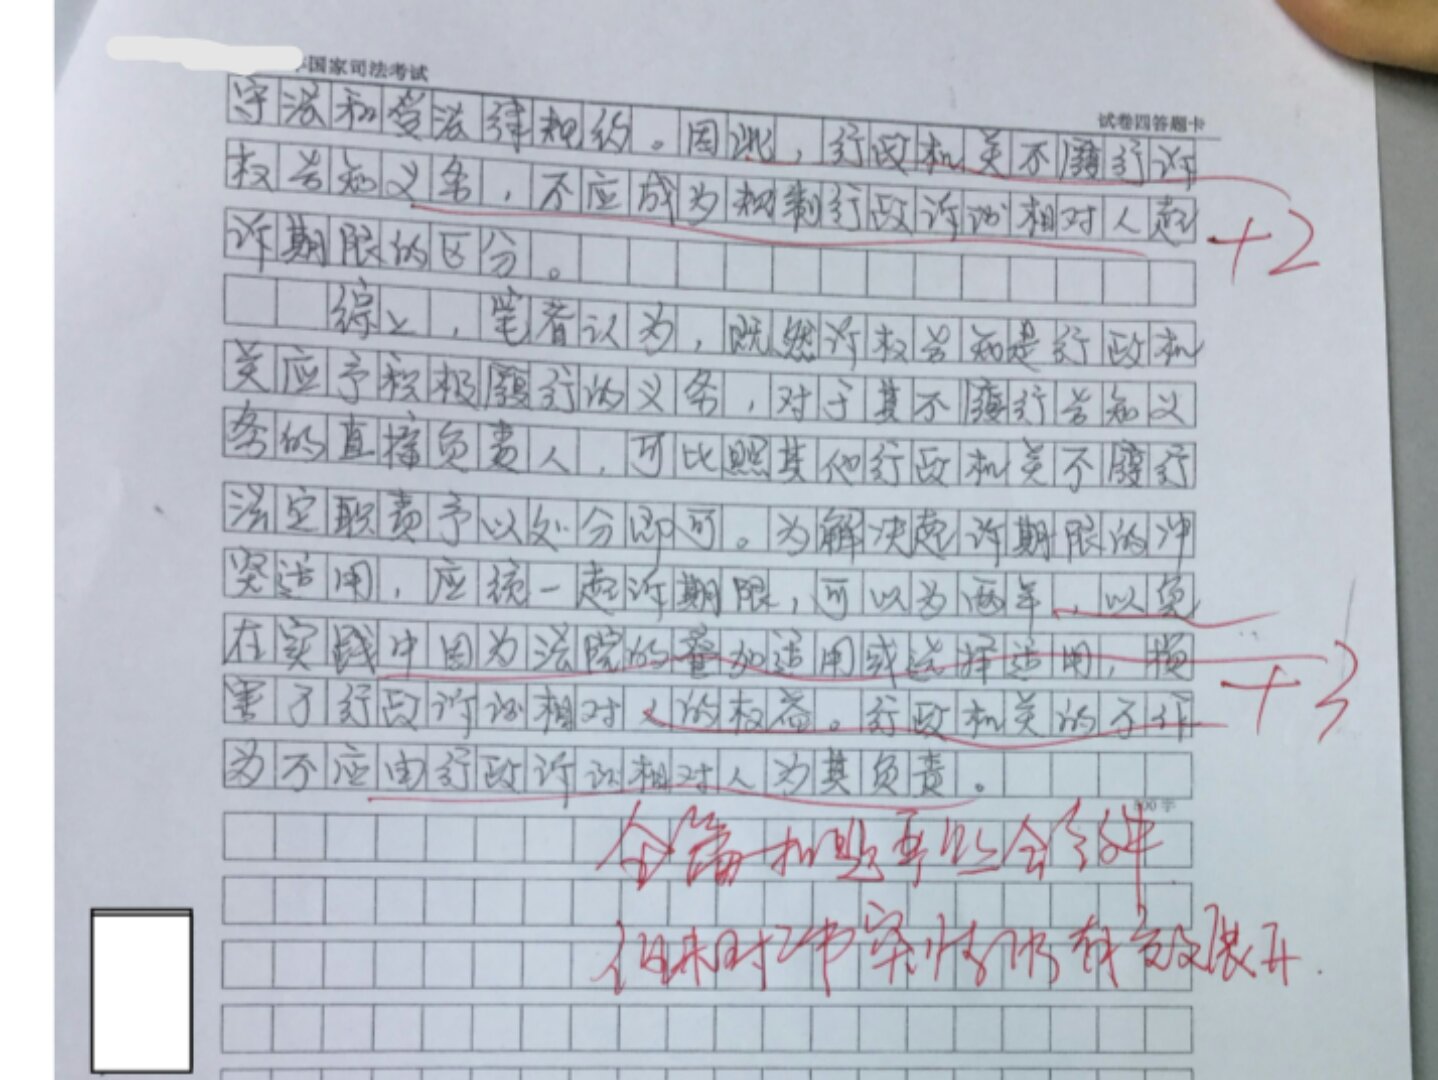 国家司法考试
试卷四答题卡
守法和受法律规约。因此，行政机关不履行诉
权告知义务，不应成为规制行政诉讼相对人起
诉期限的区分。
综上，笔者认为，既然诉权告知是行政机
关应予积极履行的义务，对于其不履行告知义
务的直接负责人，可比照其他行政机关不履行
法定职责予以处分即可。为解决起诉期限的冲
突适用，应统一起诉期限，可以为两年，以免
在实践中因为法院的叠加适用或选择适用，损
害了行政诉讼相对人的权益。行政机关的不作
为不应由行政诉讼相对人为其负责。
+2
+3
800字
全篇扣题
但未对
案情
有效展开.